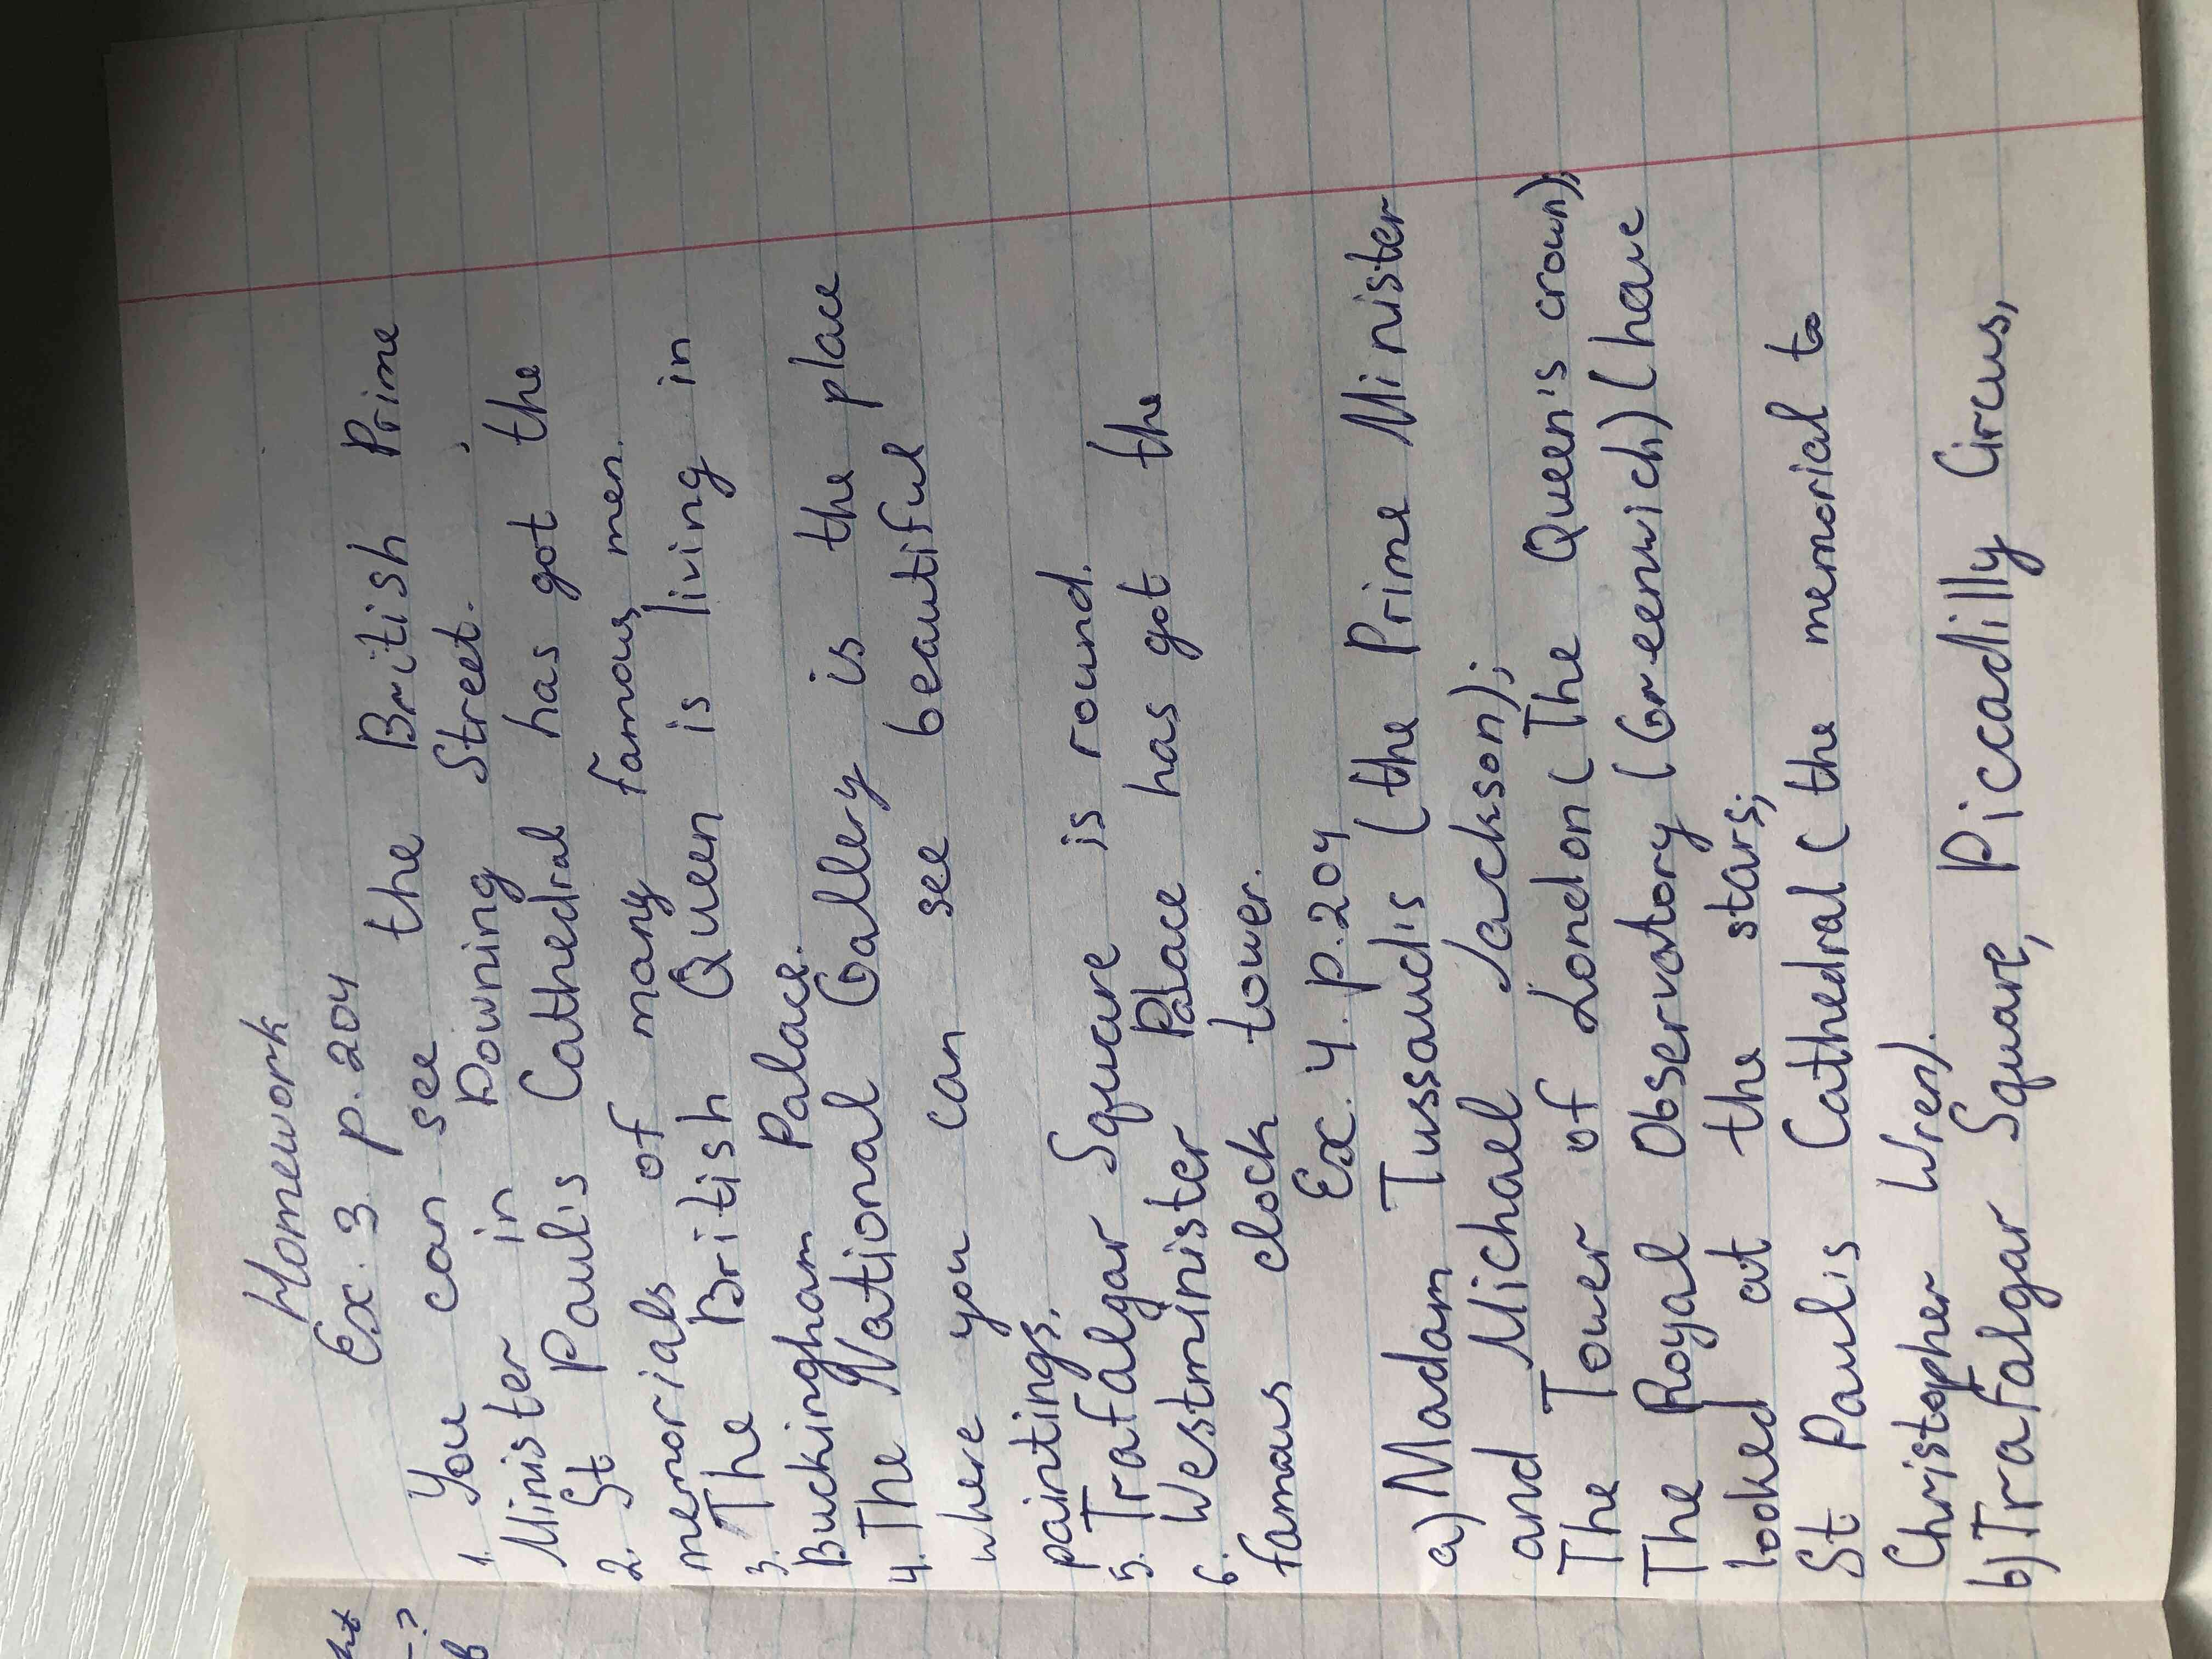 Homework
Ex. 3 p. 204
1. You can see the British Prime
Minister in Downing Street.
2. St Paul's Cathedral has got the
memorials of many famous men.
3. The British Queen is living in
Buckingham Palace.
4. The National Gallery is the place
where you can see beautiful
paintings.
5. Trafalgar Square is round.
6. Westminister Palace has got the
famous clock tower.
Ex. 4. p. 204
a) Madam Tussaud's (the Prime Minister
and Michael Jackson);
The Tower of London (The Queen's crown);
The Royal Observatory (Greenwich) (have
looked at the stars;
St Paul's Cathedral (the memorial to
Christopher Wren).
b) Trafalgar Square, Piccadilly Circus,